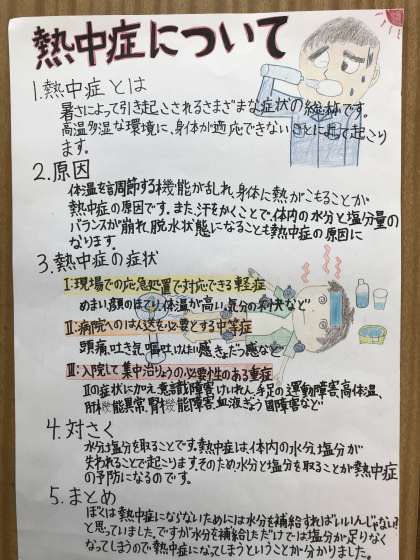 熱中症について
1.熱中症とは
暑さによって引き起こされるさまざまな症状の総称です。
高温多湿な環境に、身体が適応できないことによって起こり
ます。
2.原因
体温を調節する機能が乱れ、身体に熱がこもることが
熱中症の原因です。また、汗をかくことで、体内の水分と塩分量の
バランスが崩れ、脱水状態になることも熱中症の原因に
なります。
3.熱中症の症状
Ⅰ:現場での応急処置で対応できる軽症
めまい、顔のほてり、体温が高い、気分の不快など
Ⅱ:病院へのはん送を必要とする中等症
頭痛、吐き気、嘔吐、けんたい感、きょだつ感など
Ⅲ:入院して集中治りょうの必要性のある重症
Ⅱの症状にかえ、意識障害、けいれん、手足の運動障害、高体温、
肝機能異常、腎機能障害、血液ぎょう固障害など
4.対さく
水分、塩分を取ることです。熱中症は、体内の水分、塩分が
失われることで起こります。そのため水分と塩分を取ることが熱中症
の予防になるのです。
5.まとめ
ぼくは熱中症にならないためには水分を補給すればいいんじゃない?
と思っていました。ですが水分を補給しただけでは塩分が足りなく
なってしまうので熱中症になってしまうということが分かりました。